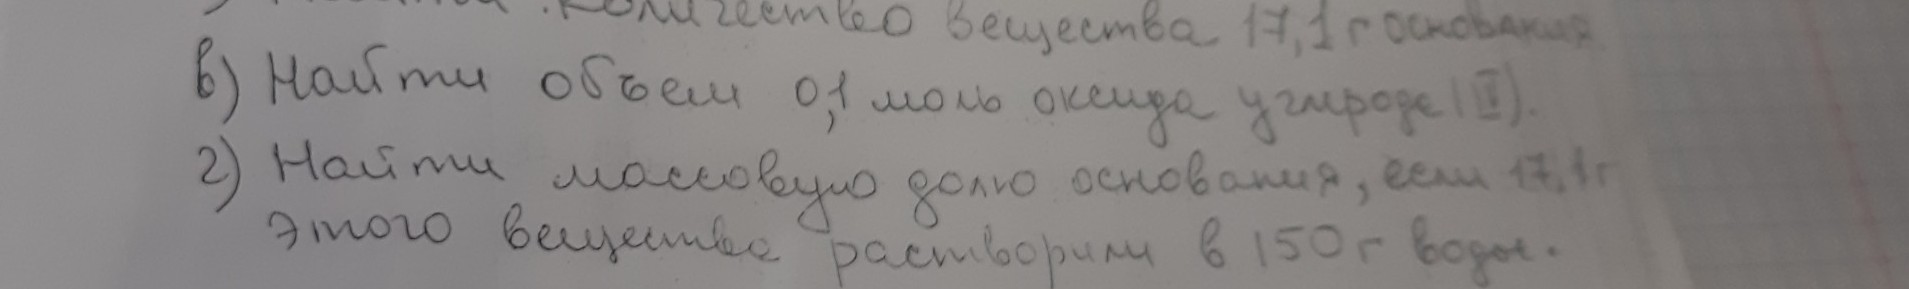 количество вещества 17,1 г основания
в) Найти объем 0,1 моль оксида углерода (II).
г) Найти массовую долю основания, если 17,1 г
этого вещества растворили в 150 г воды.